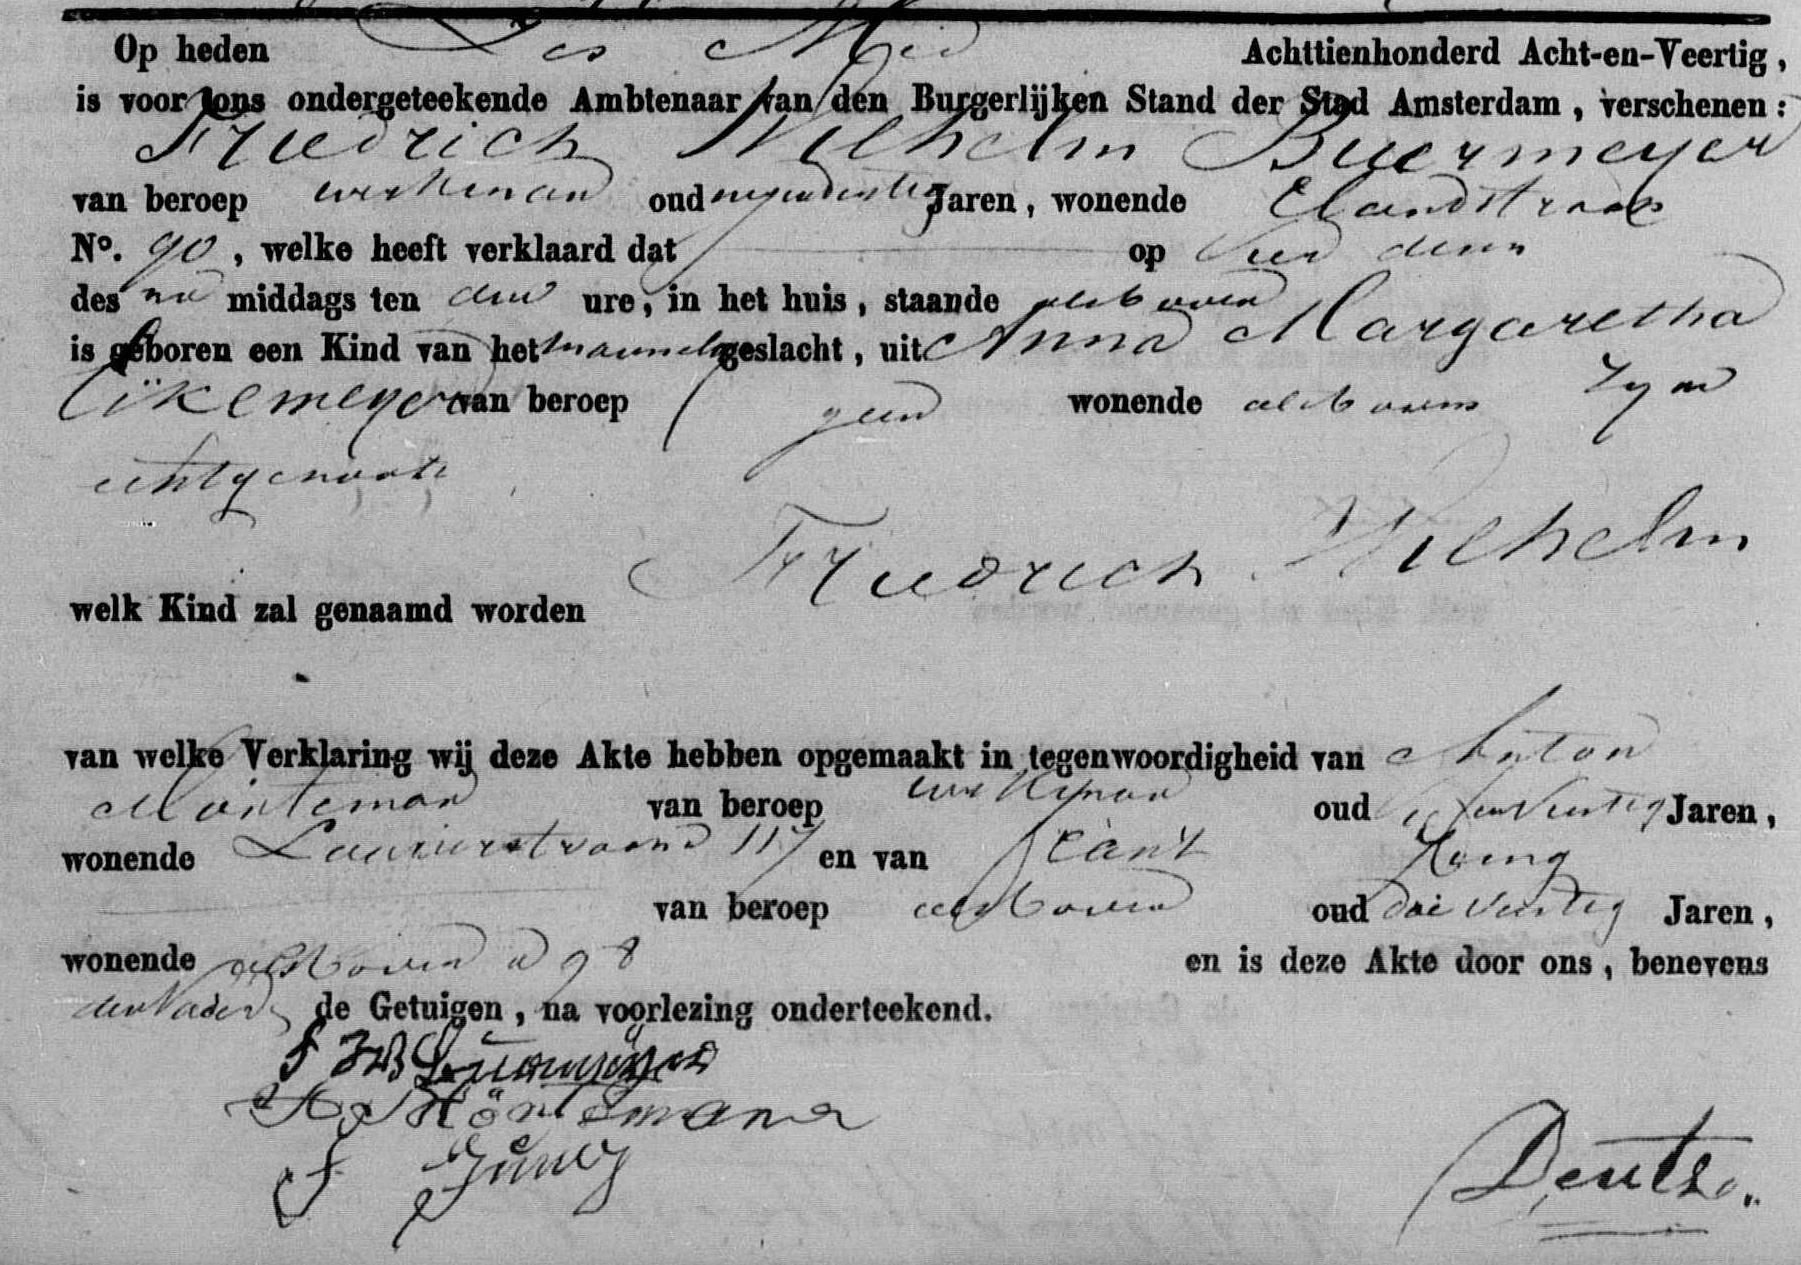 Op heden Zes Mei Achttienhonderd Acht-en-Veertig,
is voor ons ondergeteekende Ambtenaar van den Burgerlijken Stand der Stad Amsterdam, verschenen:
Friedrich Wilhelm Buermeyer
van beroep werkman oud negendertig Jaren, wonende Elandstraat
No. 90, welke heeft verklaard dat op vier dezer
des na middags ten drie ure, in het huis, staande als boven
is geboren een Kind van het mannelijk geslacht, uit Anna Margaretha
van beroep geen wonende als boven zyne
echtgenoote
Friedrich Wilhelm
welk Kind zal genaamd worden
van welke Verklaring wij deze Akte hebben opgemaakt in tegenwoordigheid van Anton
Mönteman van beroep werkman oud Jaren,
wonende Laurierstraat 117 en van
van beroep als boven oud drie Veertig Jaren,
wonende als boven 98 en is deze Akte door ons, benevens
den Vader de Getuigen, na voorlezing onderteekend.
A Möntemann